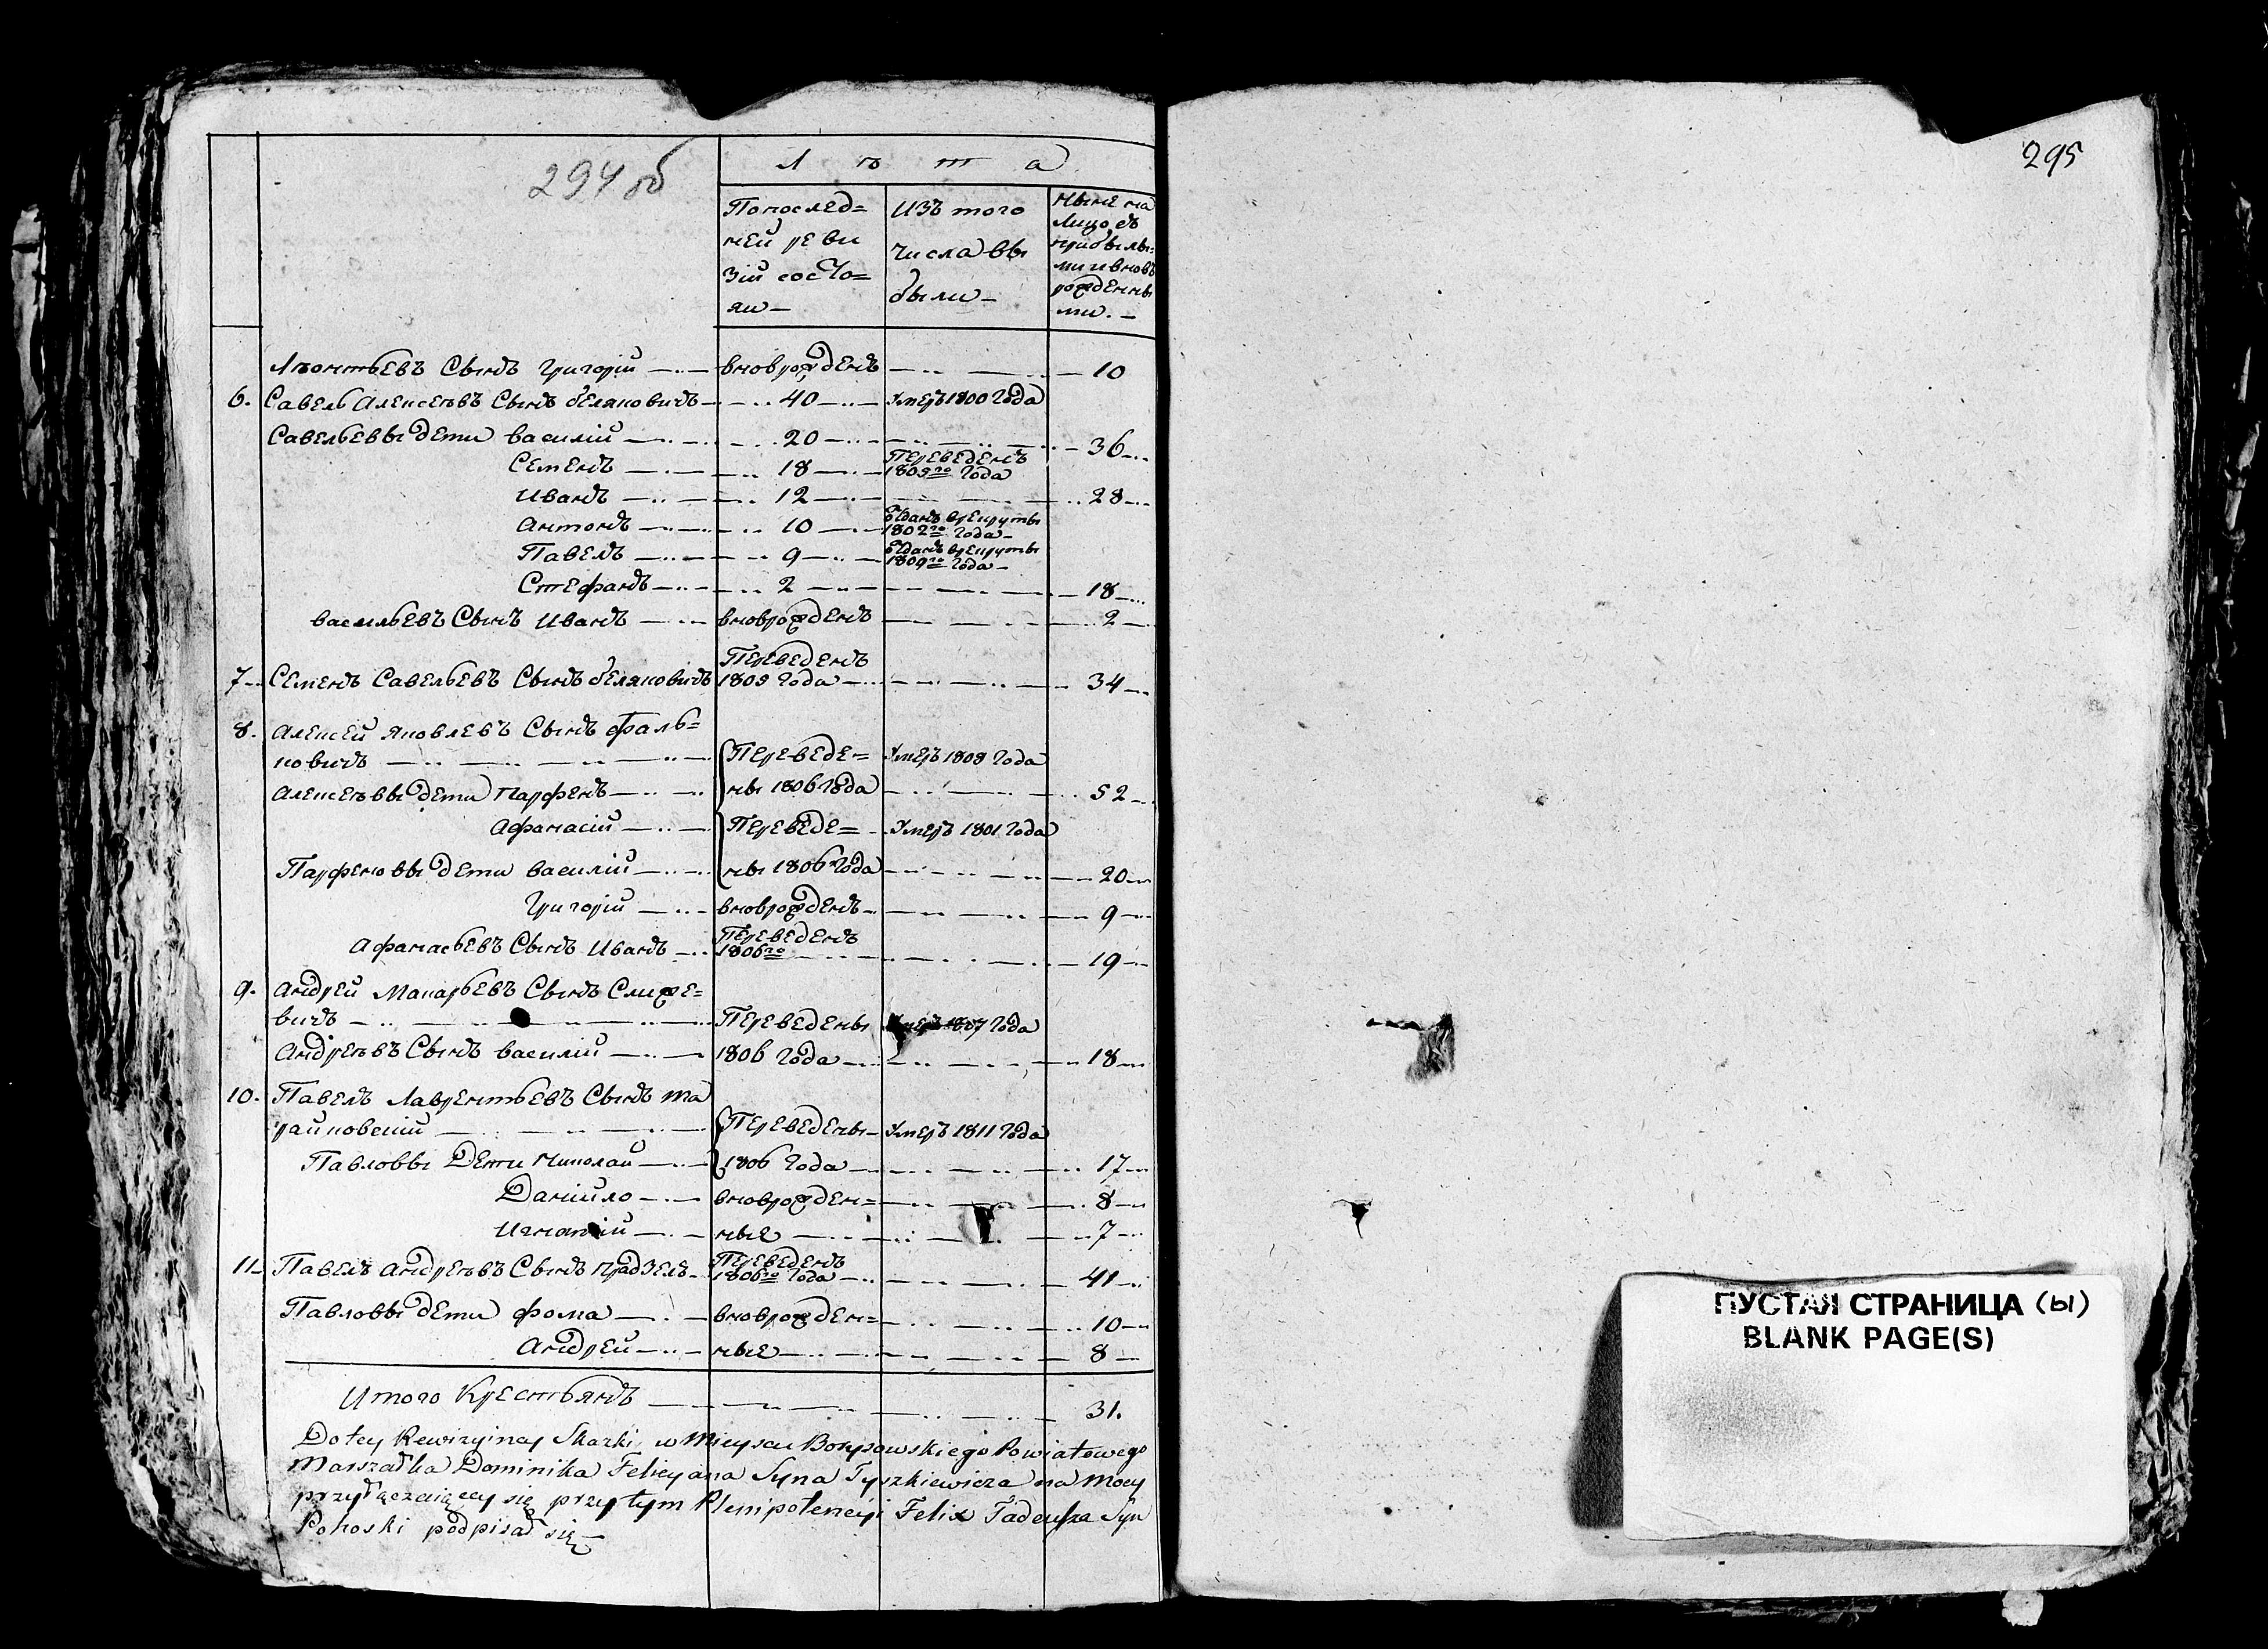 294об
Лѣта
Попослед= Изъ того Ныне на
ней реви числа вы лицо, съ
зіи состо= были — прибылы=
яли — ми и вновъ
рожденны
ми. —
Лѣонтьевъ Сынъ Григорій вноврожденъ 10
6. Савель Алексеѣвъ Сынъ беляковичъ 40 Умеръ 1800 Года
Савельевы дети василій 20 36
Семенъ 18 Переведенъ 1809го Года
Иванъ 12 28
Антонъ 10 отданъ врекруты 1802го Года
Павелъ 9 отданъ врекруты 1809го Года
Стефанъ 2 18
васильевъ Сынъ Иванъ вноврожденъ 2
7 Семенъ Савельевъ Сынъ беляковичъ Переведенъ 1809 Года 34
8. Алексей Яковлевъ Сынъ фаль=
ковичъ Переведе= Умеръ 1808 Года
Алексеѣвы дети Парфенъ ны 1806 Года 52
Афанасій Переведе= Умеръ 1801 Года
Парфеновы дети василій ны 1806 Года 20
Григорій вноврожденъ 9
Афанасьевъ Сынъ Иванъ Переведенъ 1806го 19
9. Андрей Макарьевъ Сынъ Слиже=
вичъ Переведены Умеръ 1807 Года
Андреѣвъ Сынъ василій 1806 Года 18
10. Павелъ Лаврентьевъ Сынъ та
райковскій Переведены Умеръ 1811 Года
Павловы Дети Николай 1806 Года 17
Даніило вноврожден= 8
Игнатій ные 7
11 Павелъ Андреѣвъ Сынъ Прадзедъ Переведенъ 1806го Года 41
Павловы дети фома вноврожден= 10
Андрей ные 8
Итого Крестьянъ 31.
Do tey Rewizyiney Skazki, w Mieyscu Borysowskiego Powiatowego
Marszałka Dominika Felicyana Syna Tyszkiewicza na mocy
przyłączaiącey się przy tym Plenipotencyi Felix Tadeusza Syn
Pohoski podpisał się
295
ПУСТАЯ СТРАНИЦА (ы)
BLANK PAGE(S)